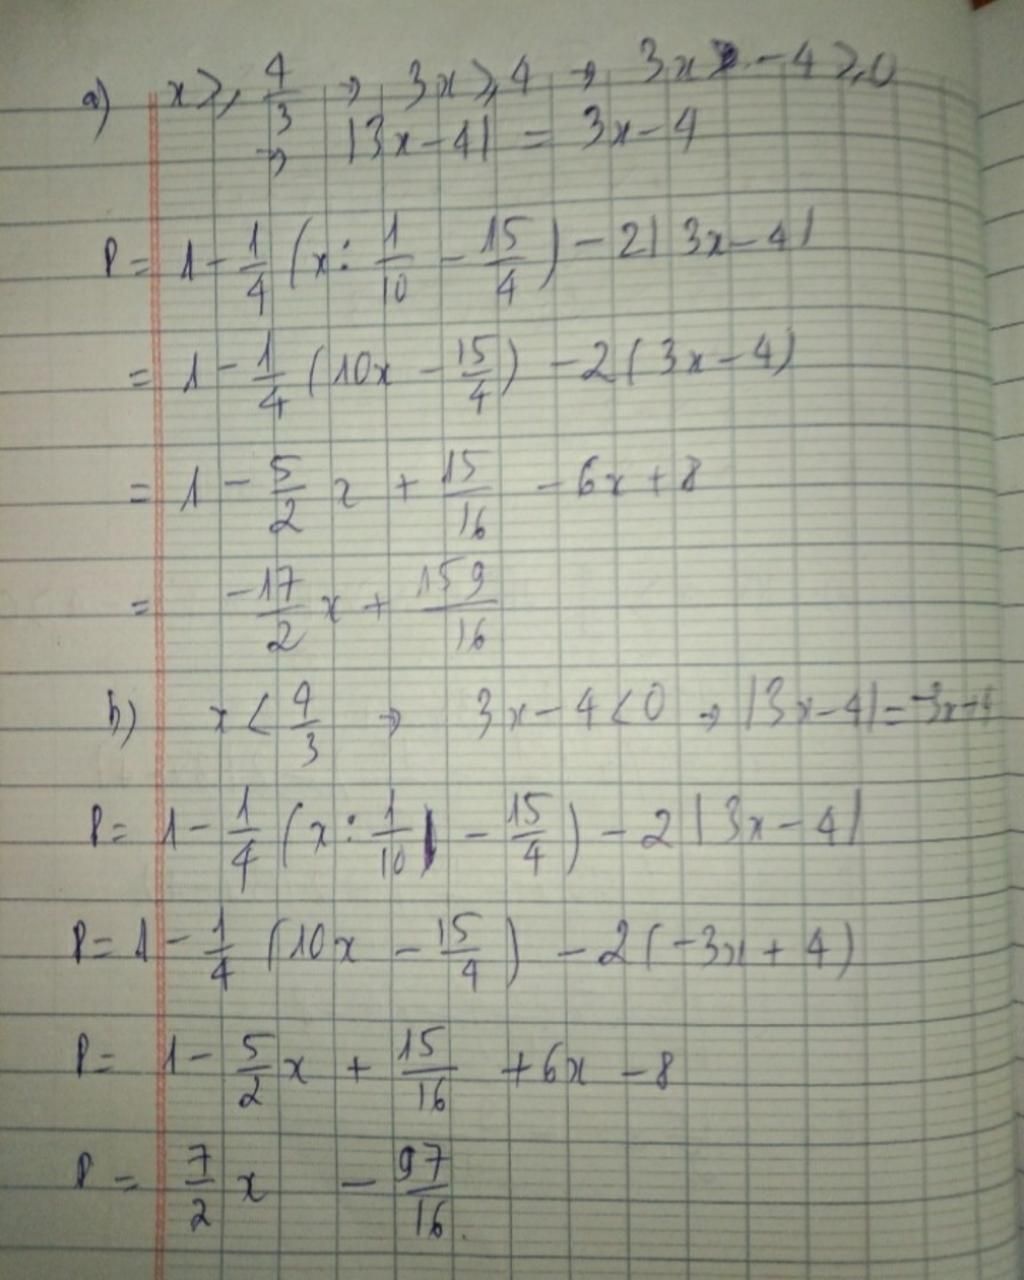 a) x ⩾ 4/3 → 3x ⩾ 4 → 3x - 4 ⩾ 0
→ |3x - 4| = 3x - 4
P = 1 - 1/4 (x : 1/10 - 15/4) - 2|3x - 4|
= 1 - 1/4 (10x - 15/4) - 2(3x - 4)
= 1 - 5/2 x + 15/16 - 6x + 8
= -17/2 x + 159/16
b) x < 4/3 → 3x - 4 < 0 → |3x - 4| = -3x + 4
P = 1 - 1/4 (x : 1/10 - 15/4) - 2|3x - 4|
P = 1 - 1/4 (10x - 15/4) - 2(-3x + 4)
P = 1 - 5/2 x + 15/16 + 6x - 8
P = 7/2 x - 97/16.